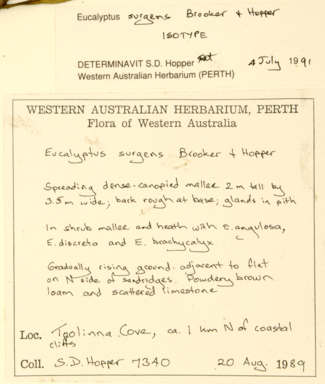 Eucalyptus surgens Brooker & Hopper
ISOTYPE
DETERMINAVIT S.D. Hopper 4 July 1991
Western Australian Herbarium (PERTH)
WESTERN AUSTRALIAN HERBARIUM, PERTH
Flora of Western Australia
Eucalyptus surgens Brooker & Hopper
Spreading dense-canopied mallee 2m tall by
3.5m wide; bark rough at base; glands in pith
In shrub mallee and heath with E. angulosa,
E. discreta and E. brachycalyx
Gradually rising ground adjacent to flat
on N side of sandridges. Powdery brown
loam and scattered limestone
Loc. Toolinna Cove, ca. 1 km N of coastal
cliffs
Coll. S.D. Hopper 7340 20 Aug. 1989